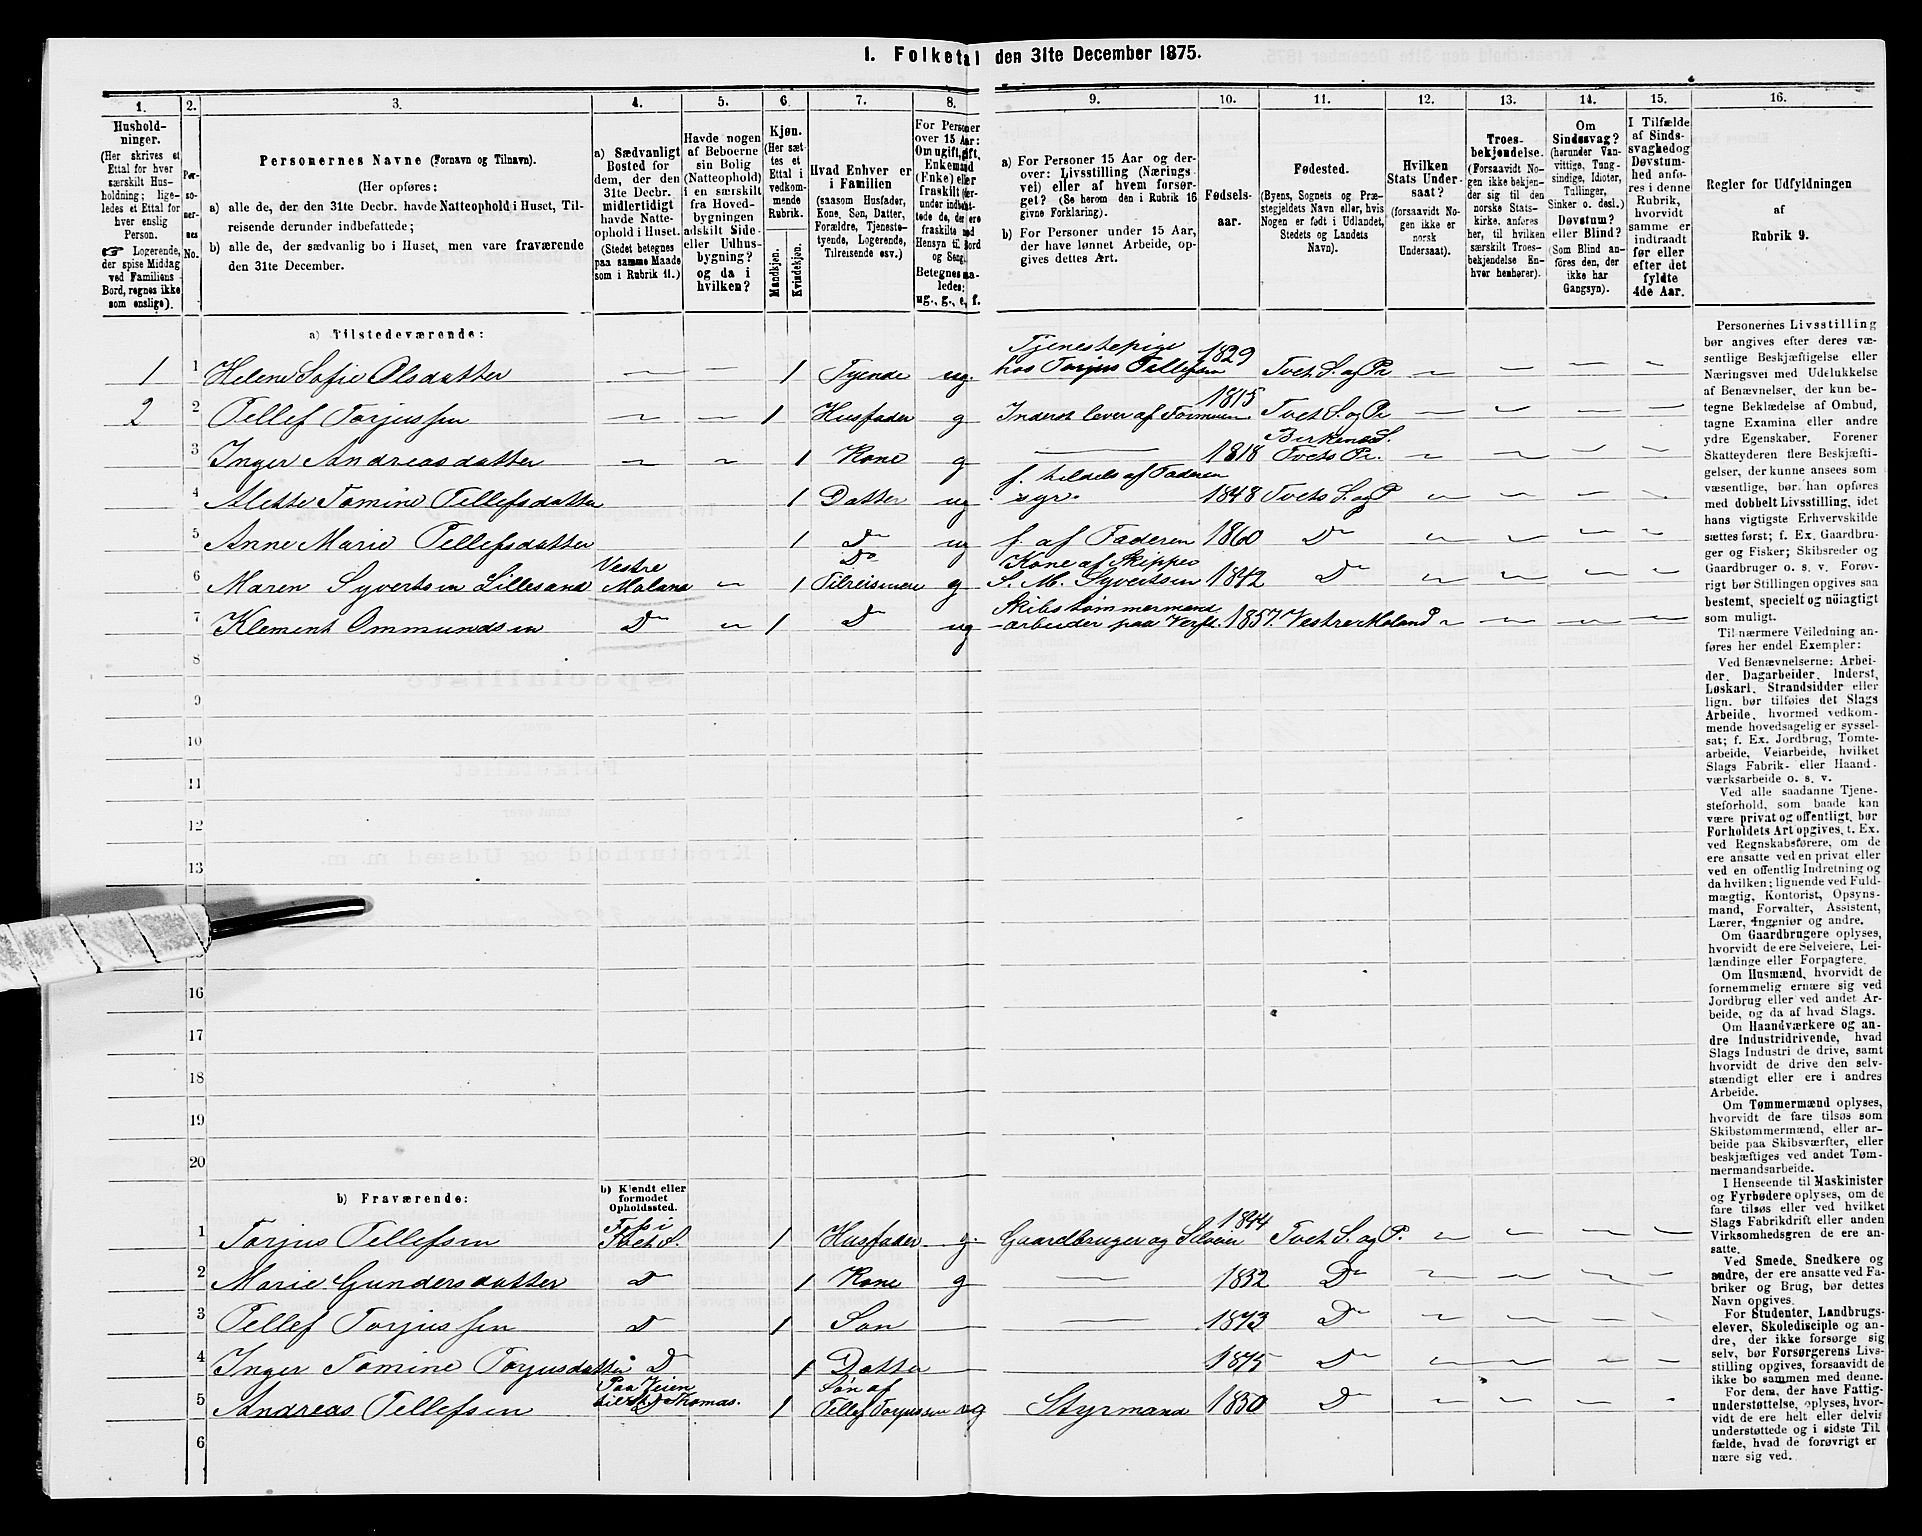 1. Folketal den 31te December 1875.
1. 2. 3. 4. 5. 6. 7. 8. 9. 10. 11. 12. 13. 14. 15. 16.
Hushold-
ninger.
(Her skrives et
Ettal for hver
særskilt Hus-
holdning; lige-
ledes et Ettal for
hver enslig
Person.
Logerende,
der spise Middag
ved Familiens
Bord, regnes ikke
som enslige).
Per-
so-
ner-
nes
No.
Personernes Navne (Fornavn og Tilnavn).
(Her opføres:
a) alle de, der den 31te Decbr. havde Natteophold i Huset, Til-
reisende derunder indbefattede;
b) alle de, der sædvanlig bo i Huset, men vare fraværende
den 31te December.
a) Sædvanligt
Bosted for
dem, der den
31te Decbr.
midlertidigt
havde Natte-
ophold i Huset.
(Stedet betegnes
paa samme Maade
som i Rubrik 11.)
Havde nogen
af Beboerne
sin Bolig
(Natteophold)
i en særskilt
fra Hoved-
bygningen
adskilt Side-
eller Udhus-
bygning?
og da i
hvilken?
Kjøn.
(Her sæt-
tes et
Ettal i
vedkom-
mende
Rubrik.
Mandkjøn.
Kvindekjøn.
Hvad Enhver er
i Familien
(saasom Husfader,
Kone, Søn, Datter,
Forældre, Tjeneste-
tyende, Logerende,
Tilreisende osv.)
For Personer
over 15 Aar:
Om ugift, gift,
Enkemand
(Enke) eller
fraskilt her-
under indbefat-
tede de, der ere
fraskilte med
Hensyn til Bord
og Seng.
Betegnes saa-
ledes:
ug., g., e, f.
a) For Personer 15 Aar og der-
over: Livsstilling (Nærings-
vei) eller af hvem forsør-
get? (Se herom den i Rubrik 16
givne Forklaring).
b) For Personer under 15 Aar,
der have lønnet Arbeide, op-
gives dettes Art.
Fødsels-
aar.
Fødested.
(Byens, Sognets og Præ-
stegjeldets Navn eller, hvis
Nogen er født i Udlandet,
Stedets og Landets
Navn).
Hvilken
Stats Under-
saat?
(forsaavidt No-
gen ikke er
norsk
Undersaat).
Troes-
bekjendelse.
(Forsaavidt No-
gen ikke bekjen-
der sig til den
norske Stats-
kirke, anføres
her, til hvilken
særskilt Troes-
bekjendelse En-
hver henhører).
Om
Sindssvag?
(herunder Van-
vittige, Tung-
sindige, Idioter,
Tullinger,
Sinker o. desl.)
Døvstum?
eller Blind?
(Som Blind an-
føres den, der
ikke har
Gangsyn).
I Tilfælde
af Sinds-
svaghed og
Døvstum-
hed anfø-
res i denne
Rubrik,
hvorvidt
samme er
indtraadt
før eller
efter det
fyldte
4de Aar.
Regler for Udfyldningen
af
Rubrik 9.
a) Tilstedeværende:
1 1 Helene Sofie Olsdatter 1 Tyende ug. Tjenestepige hos Torjus Tellefsen 1829 Tvet S. og Pr
2 2 Tellef Torjussen 1 Husfader g Inderst lever af Formuen 1815 Tvet S. og Pr
3 Inger Andreasdatter 1 Kone g 1818 Birkenes S. Tvets Pr.
4 Alette Tomine Tellefsdatter 1 Datter ug f. tildels af Faderen syr. 1848 Tvets S. og P
5 Anne Marie Tellefsdatter 1 Do ug f. af Faderen 1860 Do
6 Maren Syvertsen Lillesand Vestre Moland 1 Do Tilreisende g Kone af Skipper S. M. Syvertsen 1842 Do
7 Klement Ommundsen Do 1 Do ug Skibstømmermand arbeider paa Verft. 1857. Vestre Moland P
8
9
10
11
12
13
15
16
17
18
19
20
b) Fraværende:
b) Kjendt eller
formodet
Opholdssted.
1 Torjus Tellefsen Tvet S. 1 Husfader g. Gaardbruger og Selveier 1844 Tvet S. og P.
2 Marie Gundersdatter Do 1 Kone g 1832 Do
3 Tellef Torjussen Do 1 Søn 1873 Do
4 Inger Tomine Torjusdatter Do 1 Datter 1875 Do
5 Andreas Tellefsen Paa Veien til St. Thomas. 1 Søn af Tellef Torjussen ug Styrmand 1850 Do
6
Personernes Livsstilling
bør angives efter deres væ-
sentlige Beskjæftigelse eller
Næringsvei med Udelukkelse
af Benævnelser, der kun be-
tegne Beklædelse af Ombud,
tagne Examina eller andre
ydre Egenskaber. Forener
Skatteyderen flere Beskjæfti-
gelser, der kunne ansees som
væsentlige, bør han opføres
med dobbelt Livsstilling, idet
hans vigtigste Erhvervskilde
sættes først; f. Ex. Gaardbru-
ger og Fisker; Skibsreder og
Gaardbruger o. s. v. Forøv-
rigt bør Stillingen opgives saa
bestemt, specielt og nøiagtigt
som muligt.
Til nærmere Veiledning an-
føres her endel Exempler:
Ved Benævnelserne: Arbei-
der, Dagarbeider, Inderst,
Løskarl, Strandsidder eller
lign. bør tilføies det Slags
Arbeide, hvormed vedkom-
mende hovedsagelig er syssel-
sat; f. Ex. Jordbrug, Tomte-
arbeide, Veiarbeide, hvilket
Slags Fabrik- eller Haand-
værksarbeide o. s. v.
Ved alle saadanne Tjene-
steforhold, som baade kan
være privat og offentligt, bør
Forholdets Art opgives, t. Ex.
ved Regnskabsførere, om de
ere ansatte ved en privat eller
ved en offentlig Indretning og
da hvilken; lignende ved Fuld-
mægtig, Kontorist, Opsyns-
mand, Forvalter, Assistent,
Lærer, Ingeniør og andre.
Om Gaardbrugere oplyses,
hvorvidt de ere Selveiere, Lei-
lændinge eller Forpagtere.
Om Husmænd, hvorvidt de
fornemmelig ernære sig ved
Jordbrug eller ved andet Ar-
beide, og da af hvad Slags.
Om Haandværkere og an-
dre Industridrivende, hvad
Slags Industri de drive, samt
hvorvidt de drive den selv-
stændigt eller ere i andres
Arbeide.
Om Tømmermænd oplyses,
hvorvidt de fare tilsøs som
Skibstømmermænd, eller ar-
beide paa Skibsværfter, eller
beskjæftiges ved andet Tøm-
mermandsarbeide.
I Henseende til Maskinister
og Fyrbødere oplyses, om de
fare tilsøs eller ved hvilket
Slags Fabrikdrift eller anden
Virksomhedsgren de ere an-
satte.
Ved Smede, Snedkere og
andre, der ere ansatte ved Fa-
briker og Brug, bør dettes
Navn opgives.
For Studenter, Landbrugs-
elever, Skoledisciple og an-
dre, der ikke forsørge sig
selv, bør Forsørgerens Livs-
stilling opgives, forsaavidt de
ikke bo sammen med denne.
For dem, der have Fattig-
understøttelse, oplyses, hvor-
vidt de ere helt eller delvis
understøttede og i sidste Til-
fælde, hvad de forøvrigt er-
nære sig ved.